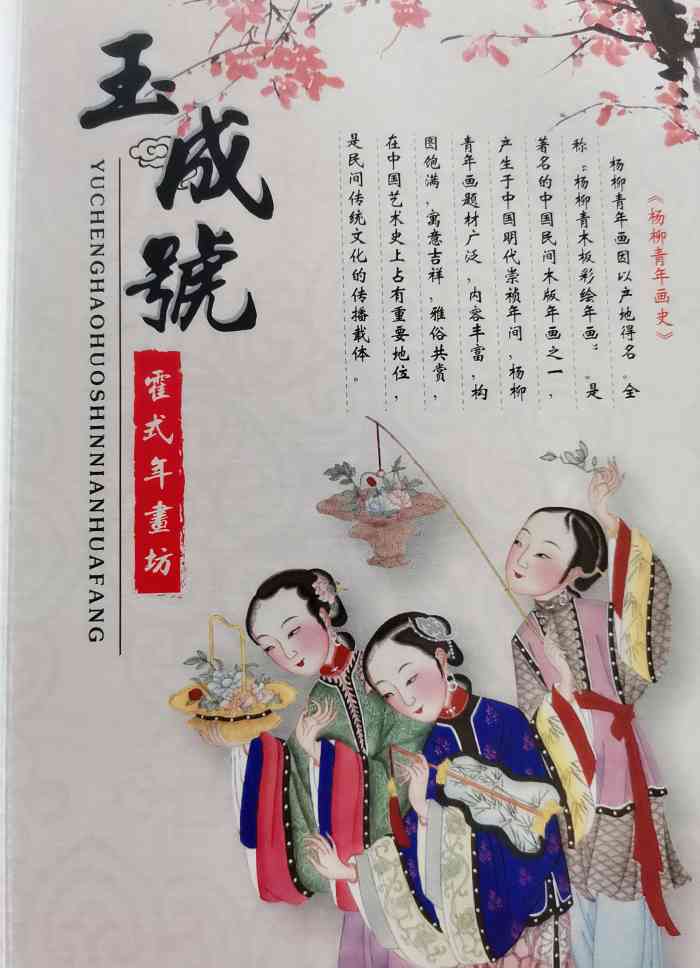 玉成號
YUCHENGHAOHUOSHINNIANHUAFANG
霍式年畫坊
《杨柳青年画史》
杨柳青年画因以产地得名。全
称“杨柳青木板彩绘年画”。是
著名的中国民间木版年画之一，
产生于中国明代崇祯年间，杨柳
青年画题材广泛，内容丰富，构
图饱满，寓意吉祥，雅俗共赏，
在中国艺术史上占有重要地位，
是民间传统文化的传播载体。